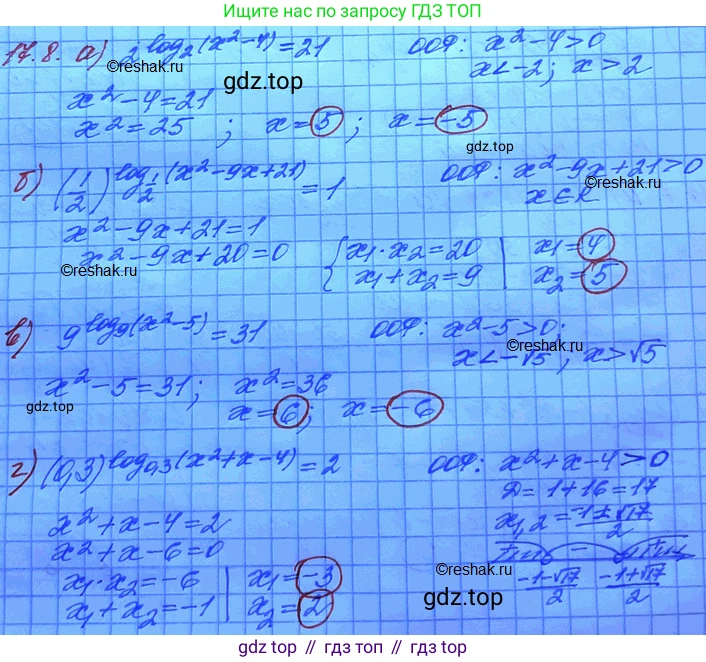 Ищите нас по запросу ГДЗ ТОП
17.8. а) 2^log₂(x²-4) = 21   ООФ: x²-4>0
©reshak.ru
gdz.top
x<-2; x>2
x²-4=21
x²=25; x=5; x=-5
gdz.top
б) (1/2)^log_{1/2}(x²-9x+21) = 1   ООФ: x²-9x+21>0
x∈R
©reshak.ru
x²-9x+21=1
x²-9x+20=0   { x₁·x₂=20 | x₁=4
x₁+x₂=9 | x₂=5
©reshak.ru
в) 9^log₉(x²-5) = 31   ООФ: x²-5>0;
©reshak.ru
x<-√5; x>√5
x²-5=31; x²=36
gdz.top
x=6; x=-6
г) (0,3)^log_{0,3}(x²+x-4) = 2   ООФ: x²+x-4>0
Д=1+16=17
x²+x-4=2   x₁,₂=(-1±√17)/2
x²+x-6=0
x₁·x₂=-6 | x₁=-3   (-1-√17)/2   (-1+√17)/2
x₁+x₂=-1 | x₂=2
©reshak.ru
gdz.top
gdz.top // гдз топ // gdz.top